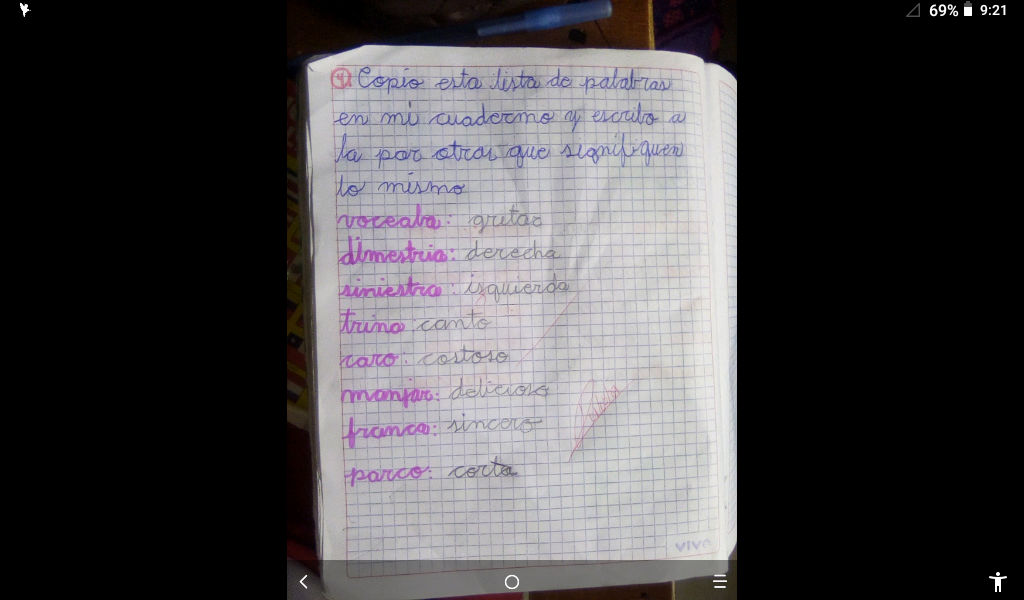 69% 9:21
4. Copio esta lista de palabras
en mi cuaderno y escribo a
la par otras que signifiquen
lo mismo
voceaba: gritar
dimestria: derecha
siniestra: izquierda
trino: canto
caro: costoso
manjar: delicioso
franco: sincero
parco: corto
VIVO